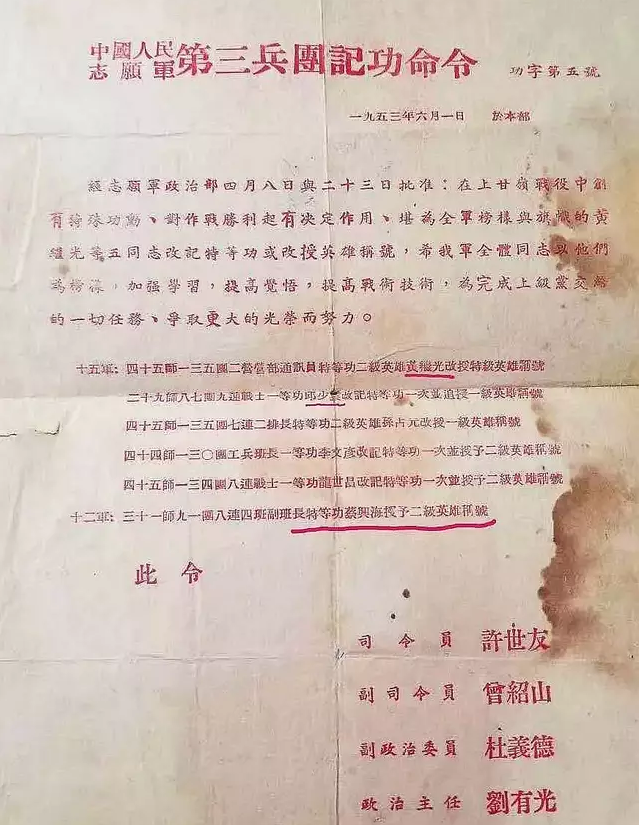 中國人民
志願軍 第三兵團記功命令 功字第五號
一九五三年六月一日 於本部
經志願軍政治部四月八日與二十三日批准：在上甘嶺戰役中創
有特殊功勳、對作戰勝利起有決定作用、堪為全軍榜樣與旗幟的黃
繼光等五同志改記特等功或改授英雄稱號，希我軍全體同志以他們
為榜樣，加强學習，提高覺悟，提高戰術技術，為完成上級黨交給
的一切任務、爭取更大的光榮而努力。
十五軍：四十五師一三五團二營營部通訊員特等功二級英雄黃繼光改授特級英雄稱號
二十九師八七團九連戰士一等功邱少雲改記特等功一次並追授一級英雄稱號
四十五師一三五團七連二排長特等功二級英雄孫占元改授一級英雄稱號
四十四師一三〇團工兵班長一等功李文彥改記特等功一次並授予二級英雄稱號
四十五師一三四團八連戰士一等功龍世昌改記特等功一次並授予二級英雄稱號
十二軍：三十一師九一團八連四班副班長特等功蔡興海授予二級英雄稱號
此令
司令員 許世友
副司令員 曾紹山
副政治委員 杜義德
政治主任 劉有光